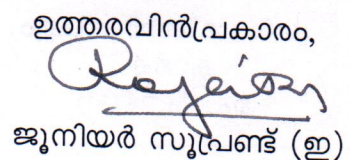 ഉത്തരവിൻപ്രകാരം,
ജൂനിയർ സൂപ്രണ്ട് (ഇ)